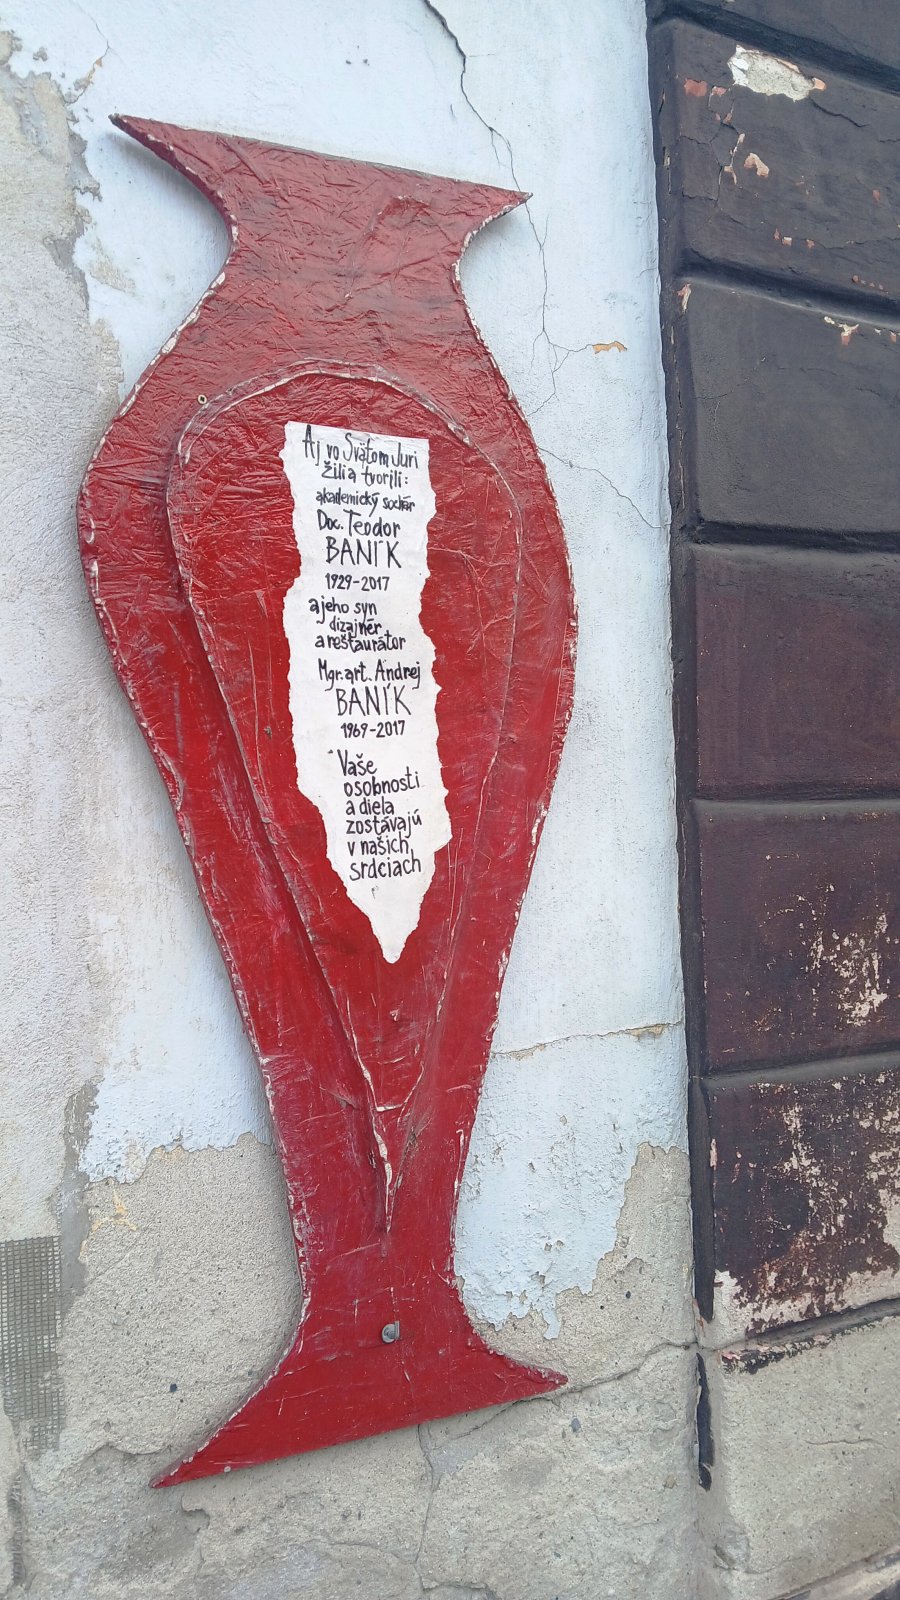 Aj vo Svätom Juri
žili a tvorili:
akademický sochár
Doc. Teodor
BANÍK
1929-2017
a jeho syn
dizajnér
a reštaurátor
Mgr. art. Andrej
BANÍK
1969-2017
Vaše
osobnosti
a diela
zostávajú
v našich
srdciach